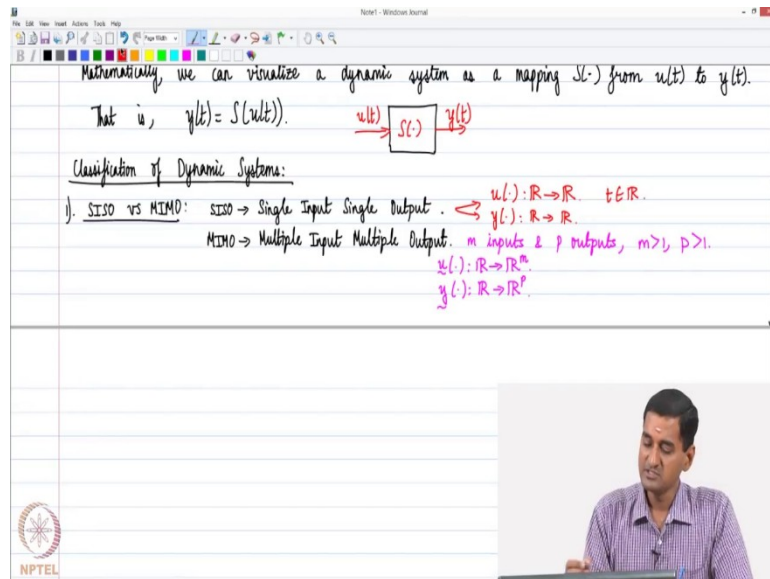 Note1 - Windows Journal
File Edit View Insert Actions Tools Help
Page Width
B I
Mathematically, we can visualize a dynamic system as a mapping S(·) from u(t) to y(t).
That is, y(t) = S(u(t)). u(t) S(·) y(t)
Classification of Dynamic Systems:
1). SISO vs MIMO: SISO → Single Input Single Output. u(·): ℝ→ℝ. t∈ℝ.
y(·): ℝ→ℝ.
MIMO → Multiple Input Multiple Output. m inputs & p outputs, m>1, p>1.
u(·): ℝ→ℝᵐ.
y(·): ℝ→ℝᵖ.
NPTEL